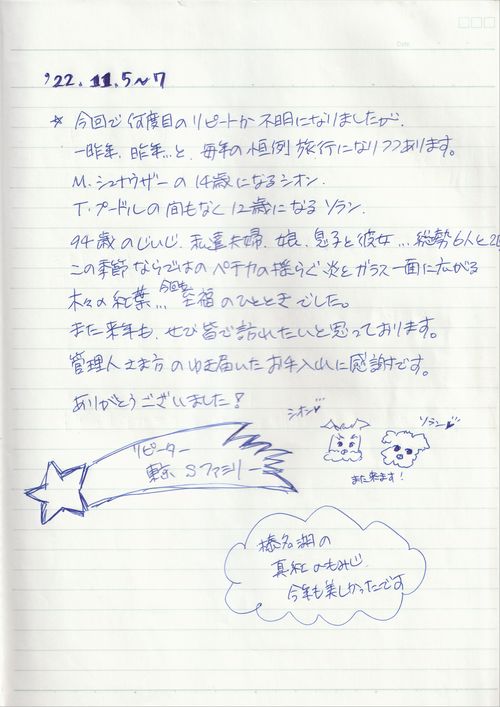 Date
'22.11.5~7
☆ 今回で何度目のリピートか不明になりましたが、
一昨年、昨年…と、毎年の恒例旅行になりつつあります。
M.シュナウザーの14歳になるシオン、
T.プードルの間もなく12歳になるソラン、
94歳のじいじ、私達夫婦、娘、息子と彼女…総勢6人と2
この季節ならではのペチカの揺らぐ炎とガラス一面に広がる
木々の紅葉…今回も至福のひとときでした。
また来年も、ぜひ皆で訪れたいと思っております。
管理人さま方のゆき届いたお手入れに感謝です。
ありがとうございました!
シオン♡
ソラン♡
リピーター
東京 Sファミリー
また来ます!
榛名湖の
真紅のもみじ、
今年も美しかったです